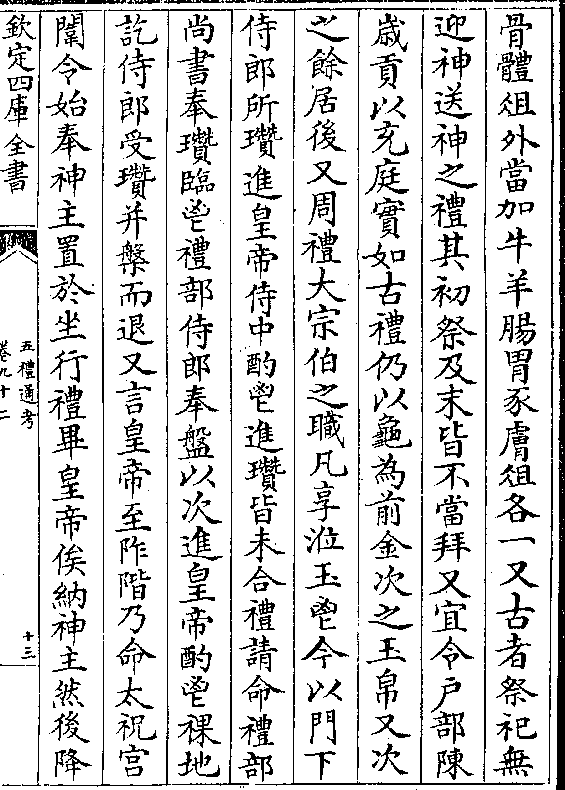 骨體俎外當加牛羊腸胃豕膚俎各一又古者祭祀無
迎神送神之禮其初祭及末皆不當拜又宜令戸部陳
歳貢以充庭實如古禮仍以龜為前金次之玉帛又次
之餘居後又周禮大宗伯之職凡享涖玉鬯今以門下
侍郎所瓚進皇帝侍中酌鬯進瓚皆未合禮請命禮部
尚書奉瓚臨鬯禮部侍郎奉盤以次進皇帝酌鬯祼地
訖侍郎受瓚并槃而退又言皇帝至阼階乃命太祝宫
闈令始奉神主置於坐行禮畢皇帝俟納神主然後降
欽定四庫全書
五禮通考
卷九十二
十三